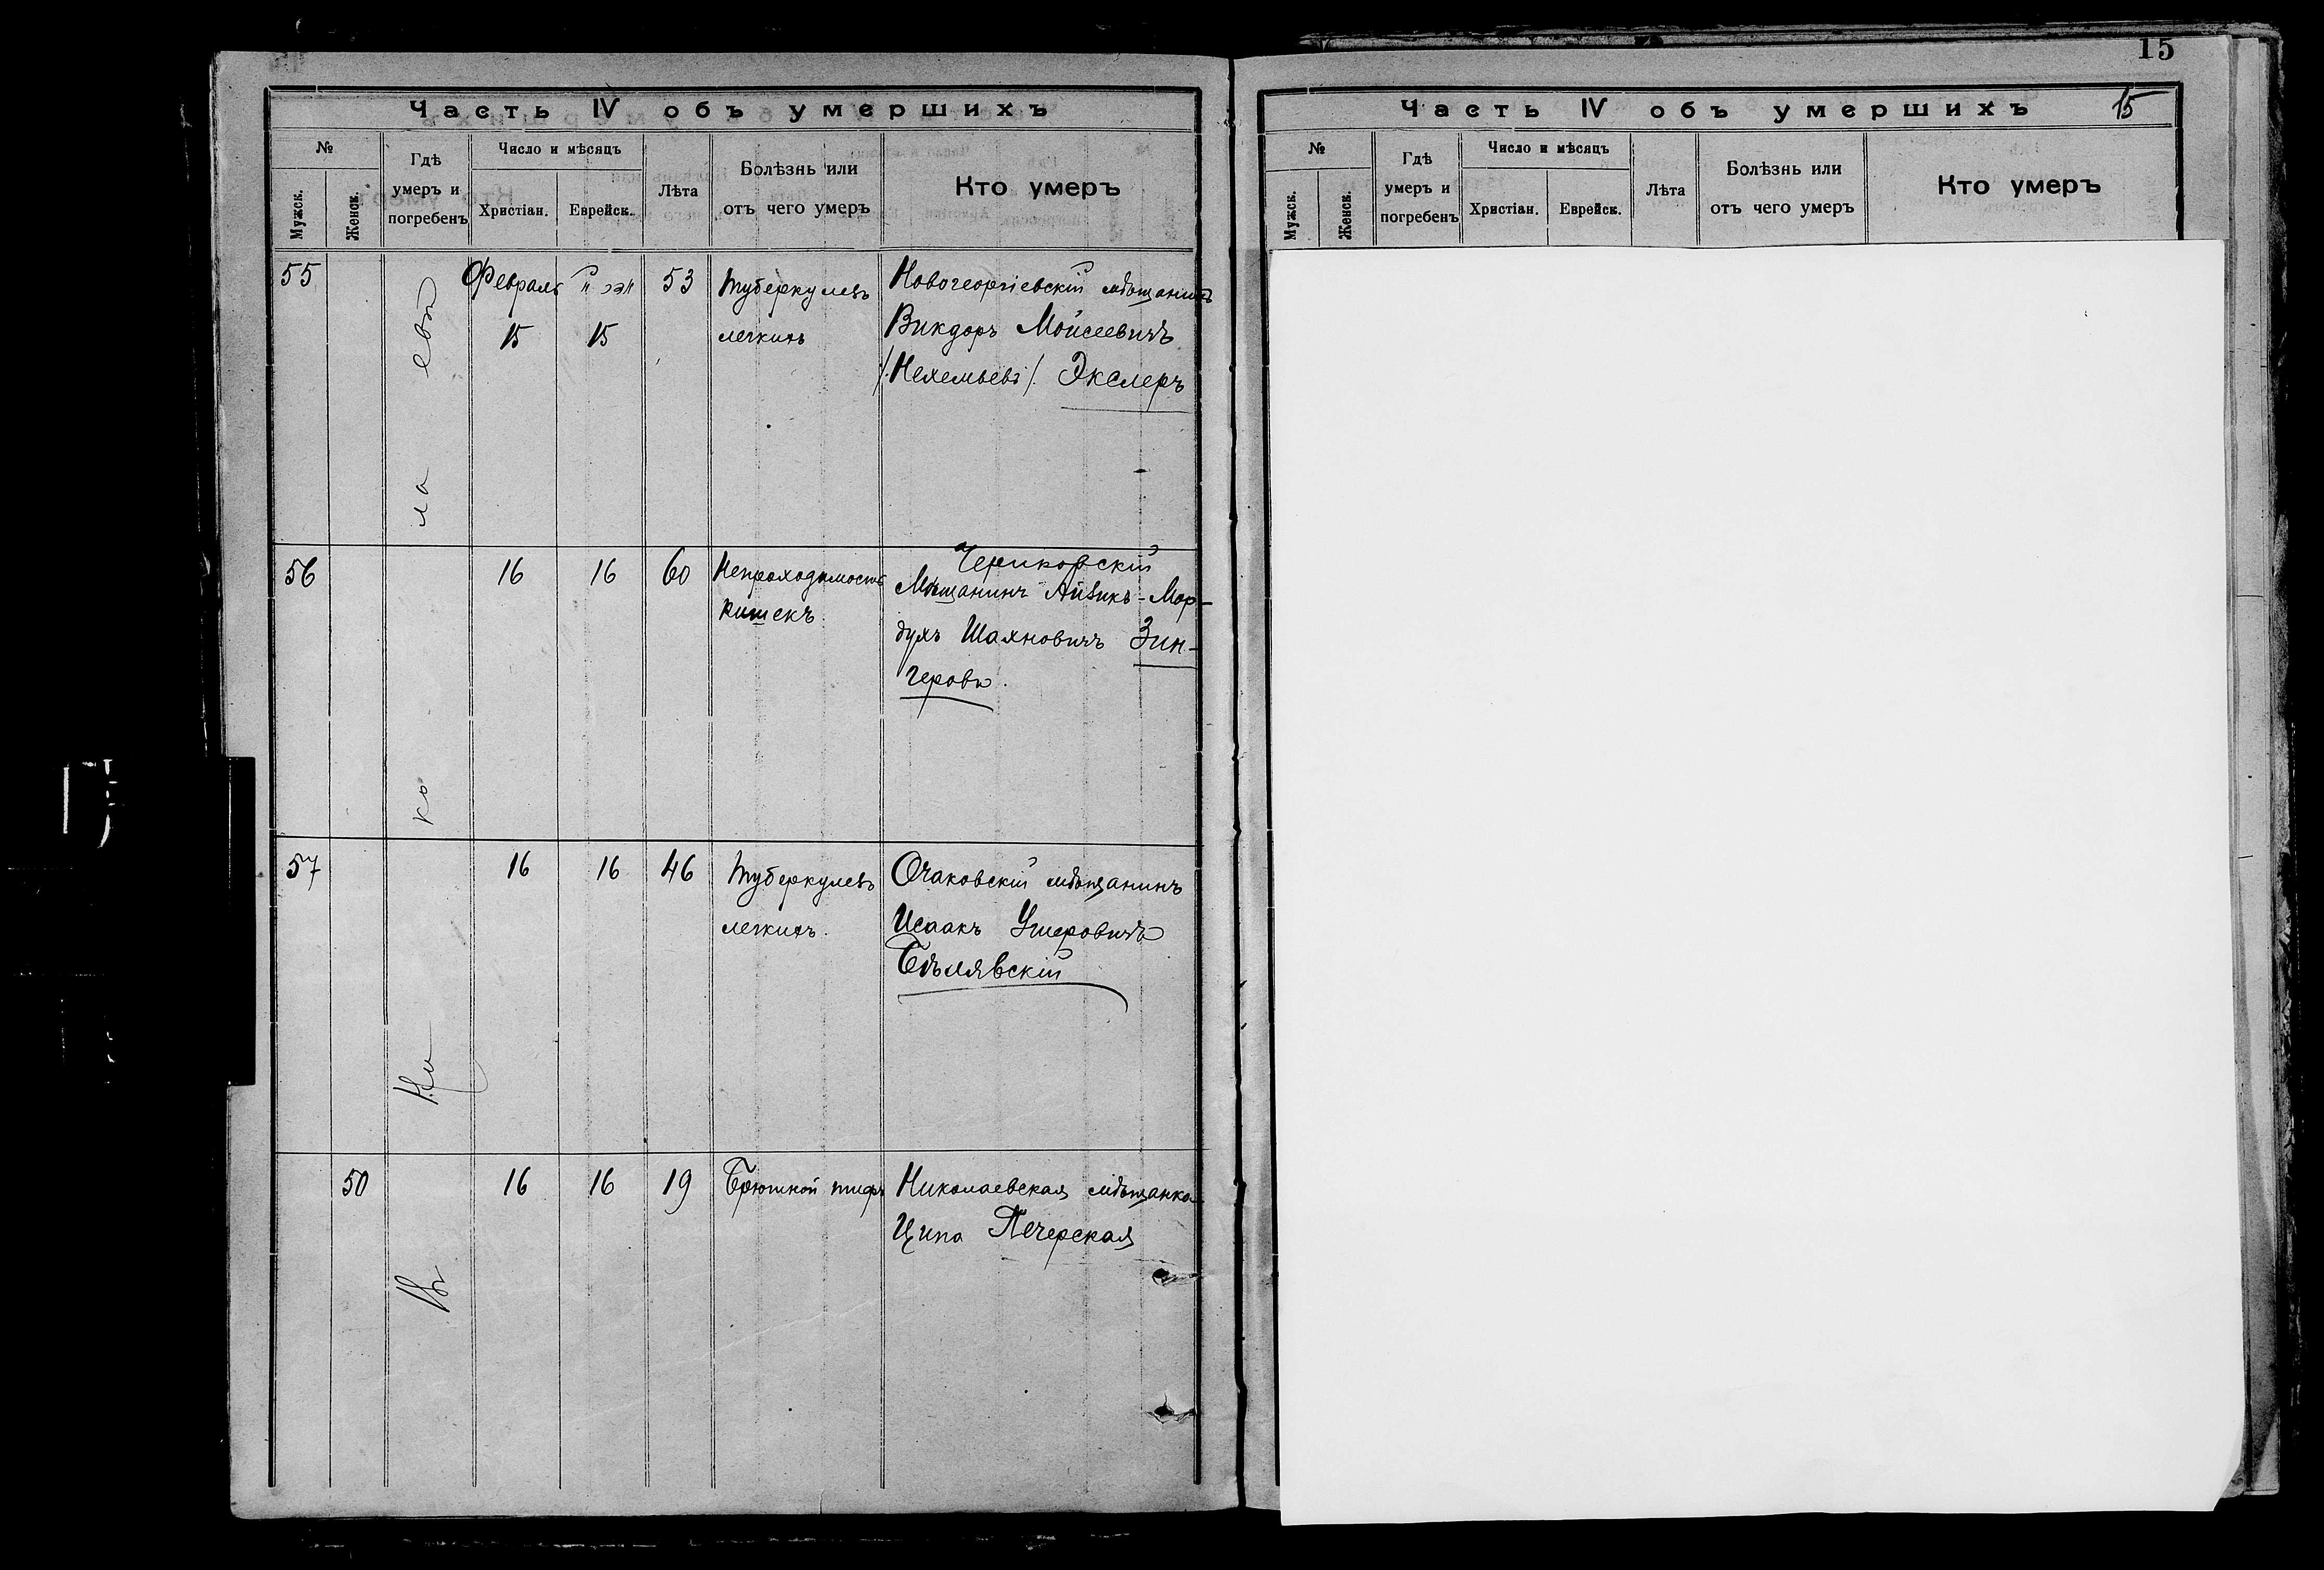 Часть IV объ умершихъ
№
Мужск.
Женск.
Гдѣ
умеръ и
погребенъ
Число и мѣсяцъ
Христіан.
Еврейск.
Лѣта
Болѣзнь или
отъ чего умеръ
Кто умеръ
Въ Николаевѣ
55
Февраль
15
15
53
Туберкулезъ
легкихъ
Новогеоргіевскій мѣщанинъ
Викдоръ Мойсеевичъ
/Нехемьевъ/ Экслеръ
56
16
16
60
Непроходимость
кишекъ
Чериковскій
Мѣщанинъ Айзикъ-Мор-
духъ Шахновичъ Зин-
геровъ.
57
16
16
46
Туберкулезъ
легкихъ.
Очаковскій мѣщанинъ
Исаакъ Ушеровичъ
Бѣлявскій
50
16
16
19
Брюшной тифъ
Николаевская мѣщанка
Ципа Печерская
15
Часть IV объ умершихъ
15
№
Мужск.
Женск.
Гдѣ
умеръ и
погребенъ
Число и мѣсяцъ
Христіан.
Еврейск.
Лѣта
Болѣзнь или
отъ чего умеръ
Кто умеръ